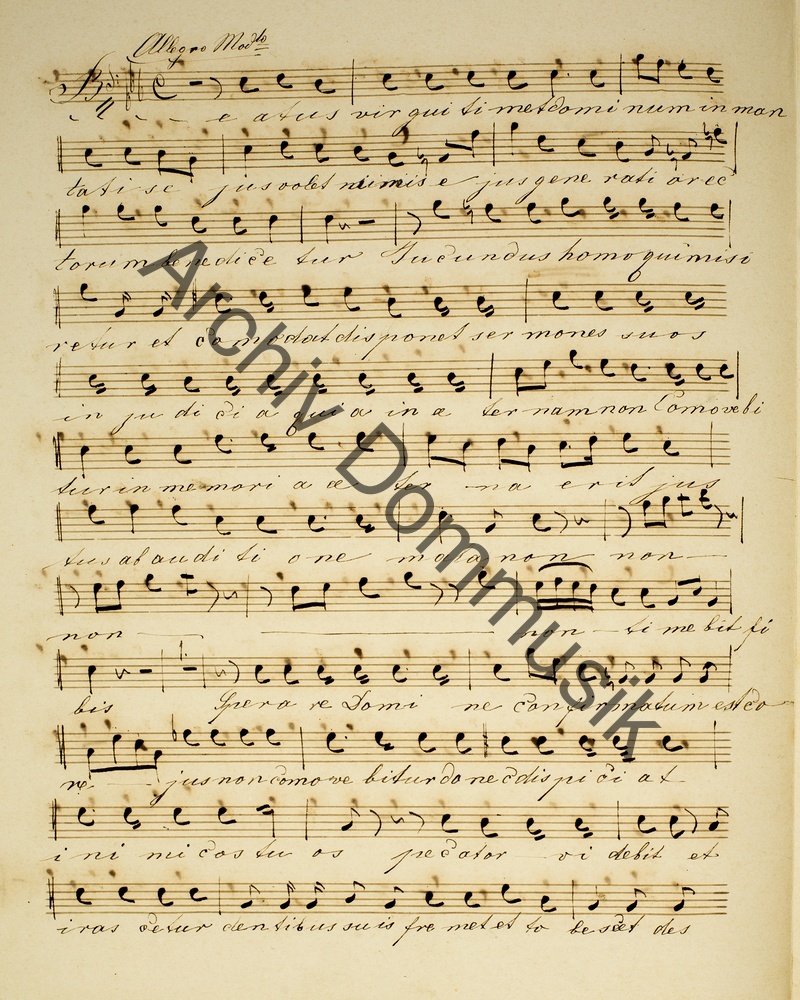 Allegro Mod<sup>to</sup>
B
e atus vir qui ti met domi num in man
tati se jus volet nimis e jus gene rati o rec
torum benedice tur Jucundus homo qui misi
retur et comodat disponet ser mones suos
in ju di ci a qui a in æ ter nam non Comove bi
tur in me mori a æ ter na erit jus
tus ab audi ti o ne mala non non
non non ti me bit fi
bis Spera re Domi ne confirmatum est co
re jus non comove bitur do nec dispi ci at
i ni mi cos su os pecator vi debit et
iras cetur dentibus suis fre met et ta be scet des
Archiv Dommusik